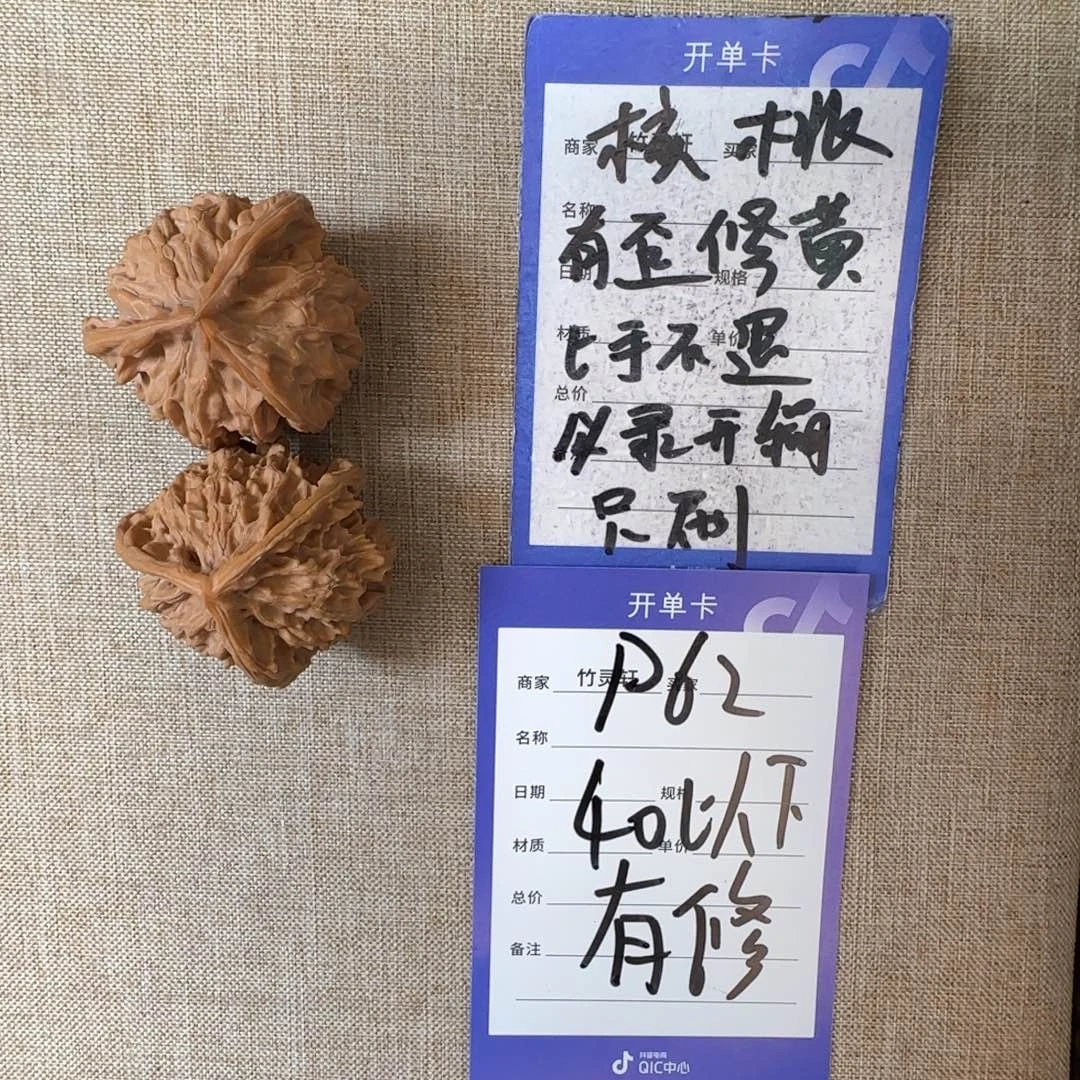 开单卡
核桃
商家 竹灵轩 买家
名称
有歪修黄
日期 规格
材质 单价
上手不退
总价
必录开箱
只刷
开单卡
P62
商家 竹灵轩 买家
名称
日期 规格
40以下
材质 单价
总价
有修
备注
抖音电商
QIC中心